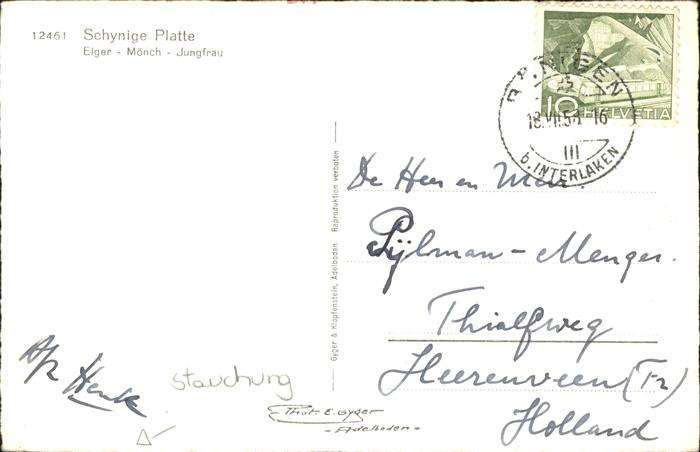 12461 Schynige Platte
Eiger - Mönch - Jungfrau
10 HELVETIA
18.VII.54-16
III
b. INTERLAKEN
Gyger & Klopfenstein, Adelboden Reproduktion verboten
De Heer en Mevr.
Pijlman - Menger.
Thialfweg
Heerenveen (Fr)
Holland
Afz Henk
stauchung
Phot. E. Gyger
- Adelboden -